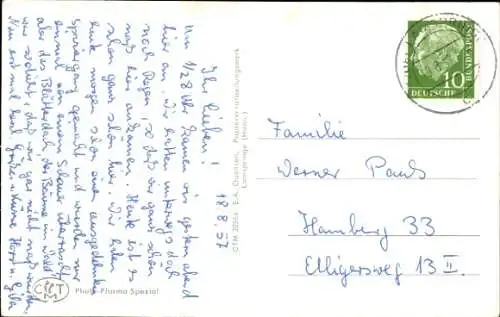 18.8.57
Ihr Lieben!
Um 1/2 8 Uhr kamen wir gestern abend
hier an. Wir hatten unterwegs doch
noch Regen, so daß wir ganz schön
naß hier ankamen. Heute ist es
schon ganz schön hier. Wir haben
heute morgen schon einen ausgedehnten
Spaziergang gemacht und wurden nur
einmal von einem Schauer überrascht,
aber das Blätterdach der Bäume im Wald
war so dicht, daß wir gar nicht naß wurden.
Nun erst mal Grüße
CTM 2056a E.A. Quensen, Papierverarbeitungswerk
Lamspringe (Hann.)
CTM
Photo-Plasma Spezial
10
DEUTSCHE
BUNDESPOST
Familie
Werner Pauls
Hamburg 33
Elligersweg 13 II.